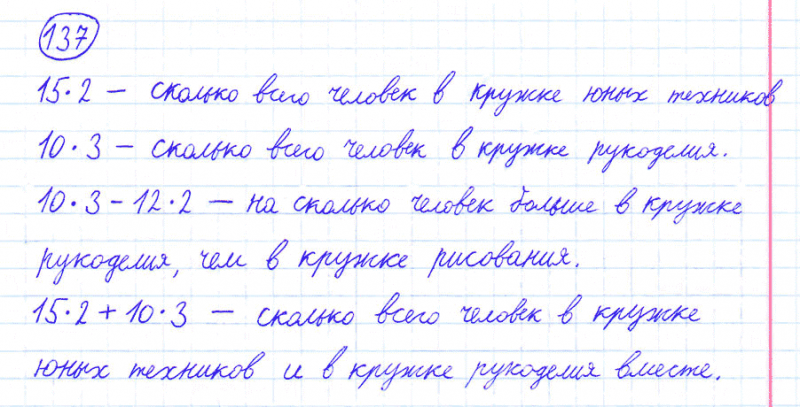 137
15·2 – сколько всего человек в кружке юных техников
10·3 – сколько всего человек в кружке рукоделия.
10·3 – 12·2 – на сколько человек больше в кружке
рукоделия, чем в кружке рисования.
15·2 + 10·3 – сколько всего человек в кружке
юных техников и в кружке рукоделия вместе.